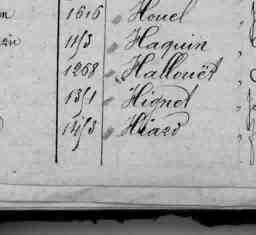 1616 Houel
1113 Haquin
1268 Hallouët
1311 Hignet
1413 Hiard